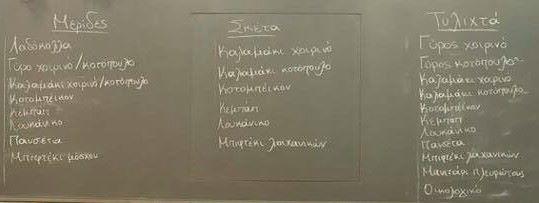 Μερίδες
Λαδόκολλα
Γύρο χοιρινό/κοτόπουλο
Καλαμάκι χοιρινό/κοτόπουλο
Κοτομπέικον
Κεμπάπ
Λουκάνικο
Πανσέτα
Μπιφτέκι μόσχου
Σκέτα
Καλαμάκι χοιρινό
Καλαμάκι κοτόπουλο
Κοτομπέικον
Κεμπάπ
Λουκάνικο
Μπιφτέκι λαχανικών
Τυλιχτά
Γύρος χοιρινό
Γύρος κοτόπουλο
Καλαμάκι χοιρινό
Καλαμάκι κοτόπουλο
Κοτομπέικον
Κεμπάπ
Λουκάνικο
Πανσέτα
Μπιφτέκι λαχανικών
Μανιτάρι πλευρώτους
Οικολογικό